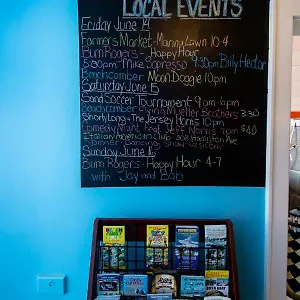 LOCAL EVENTS
Friday June 14
Farmers Market - Manny Lawn 10-4
Bum Rogers - Happy Hour
5:30pm Mike Sopresso 9:30pm Billy Hector
Beachcomber Moon Doggie 10pm
Saturday June 15
Sand Soccer Tournament 9am-6pm
Beachcomber Mueller Brothers 3:30
Shorty Long & The Jersey Horns 10pm
Comedy Night Feat. Jeff Norris 7pm $40
Italian American Club 302 Hamilton Ave
Dinner Dancing Show
Sunday June 16
Bum Rogers - Happy Hour 4-7
with Jay and Bob